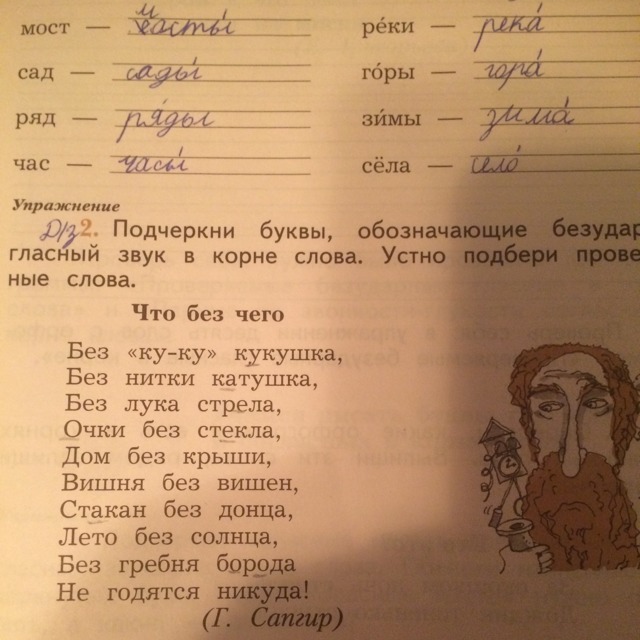 мост — мосты́ ре́ки — река́
сад — сады́ го́ры — гора́
ряд — ряды́ зи́мы — зима́
час — часы́ сёла — село́
Упражнение
Д/з 2. Подчеркни буквы, обозначающие безудар
гласный звук в корне слова. Устно подбери прове
ные слова.
Что без чего
Без «ку-ку» кукушка,
Без нитки катушка,
Без лука стрела,
Очки без стекла,
Дом без крыши,
Вишня без вишен,
Стакан без донца,
Лето без солнца,
Без гребня борода
Не годятся никуда!
(Г. Сапгир)